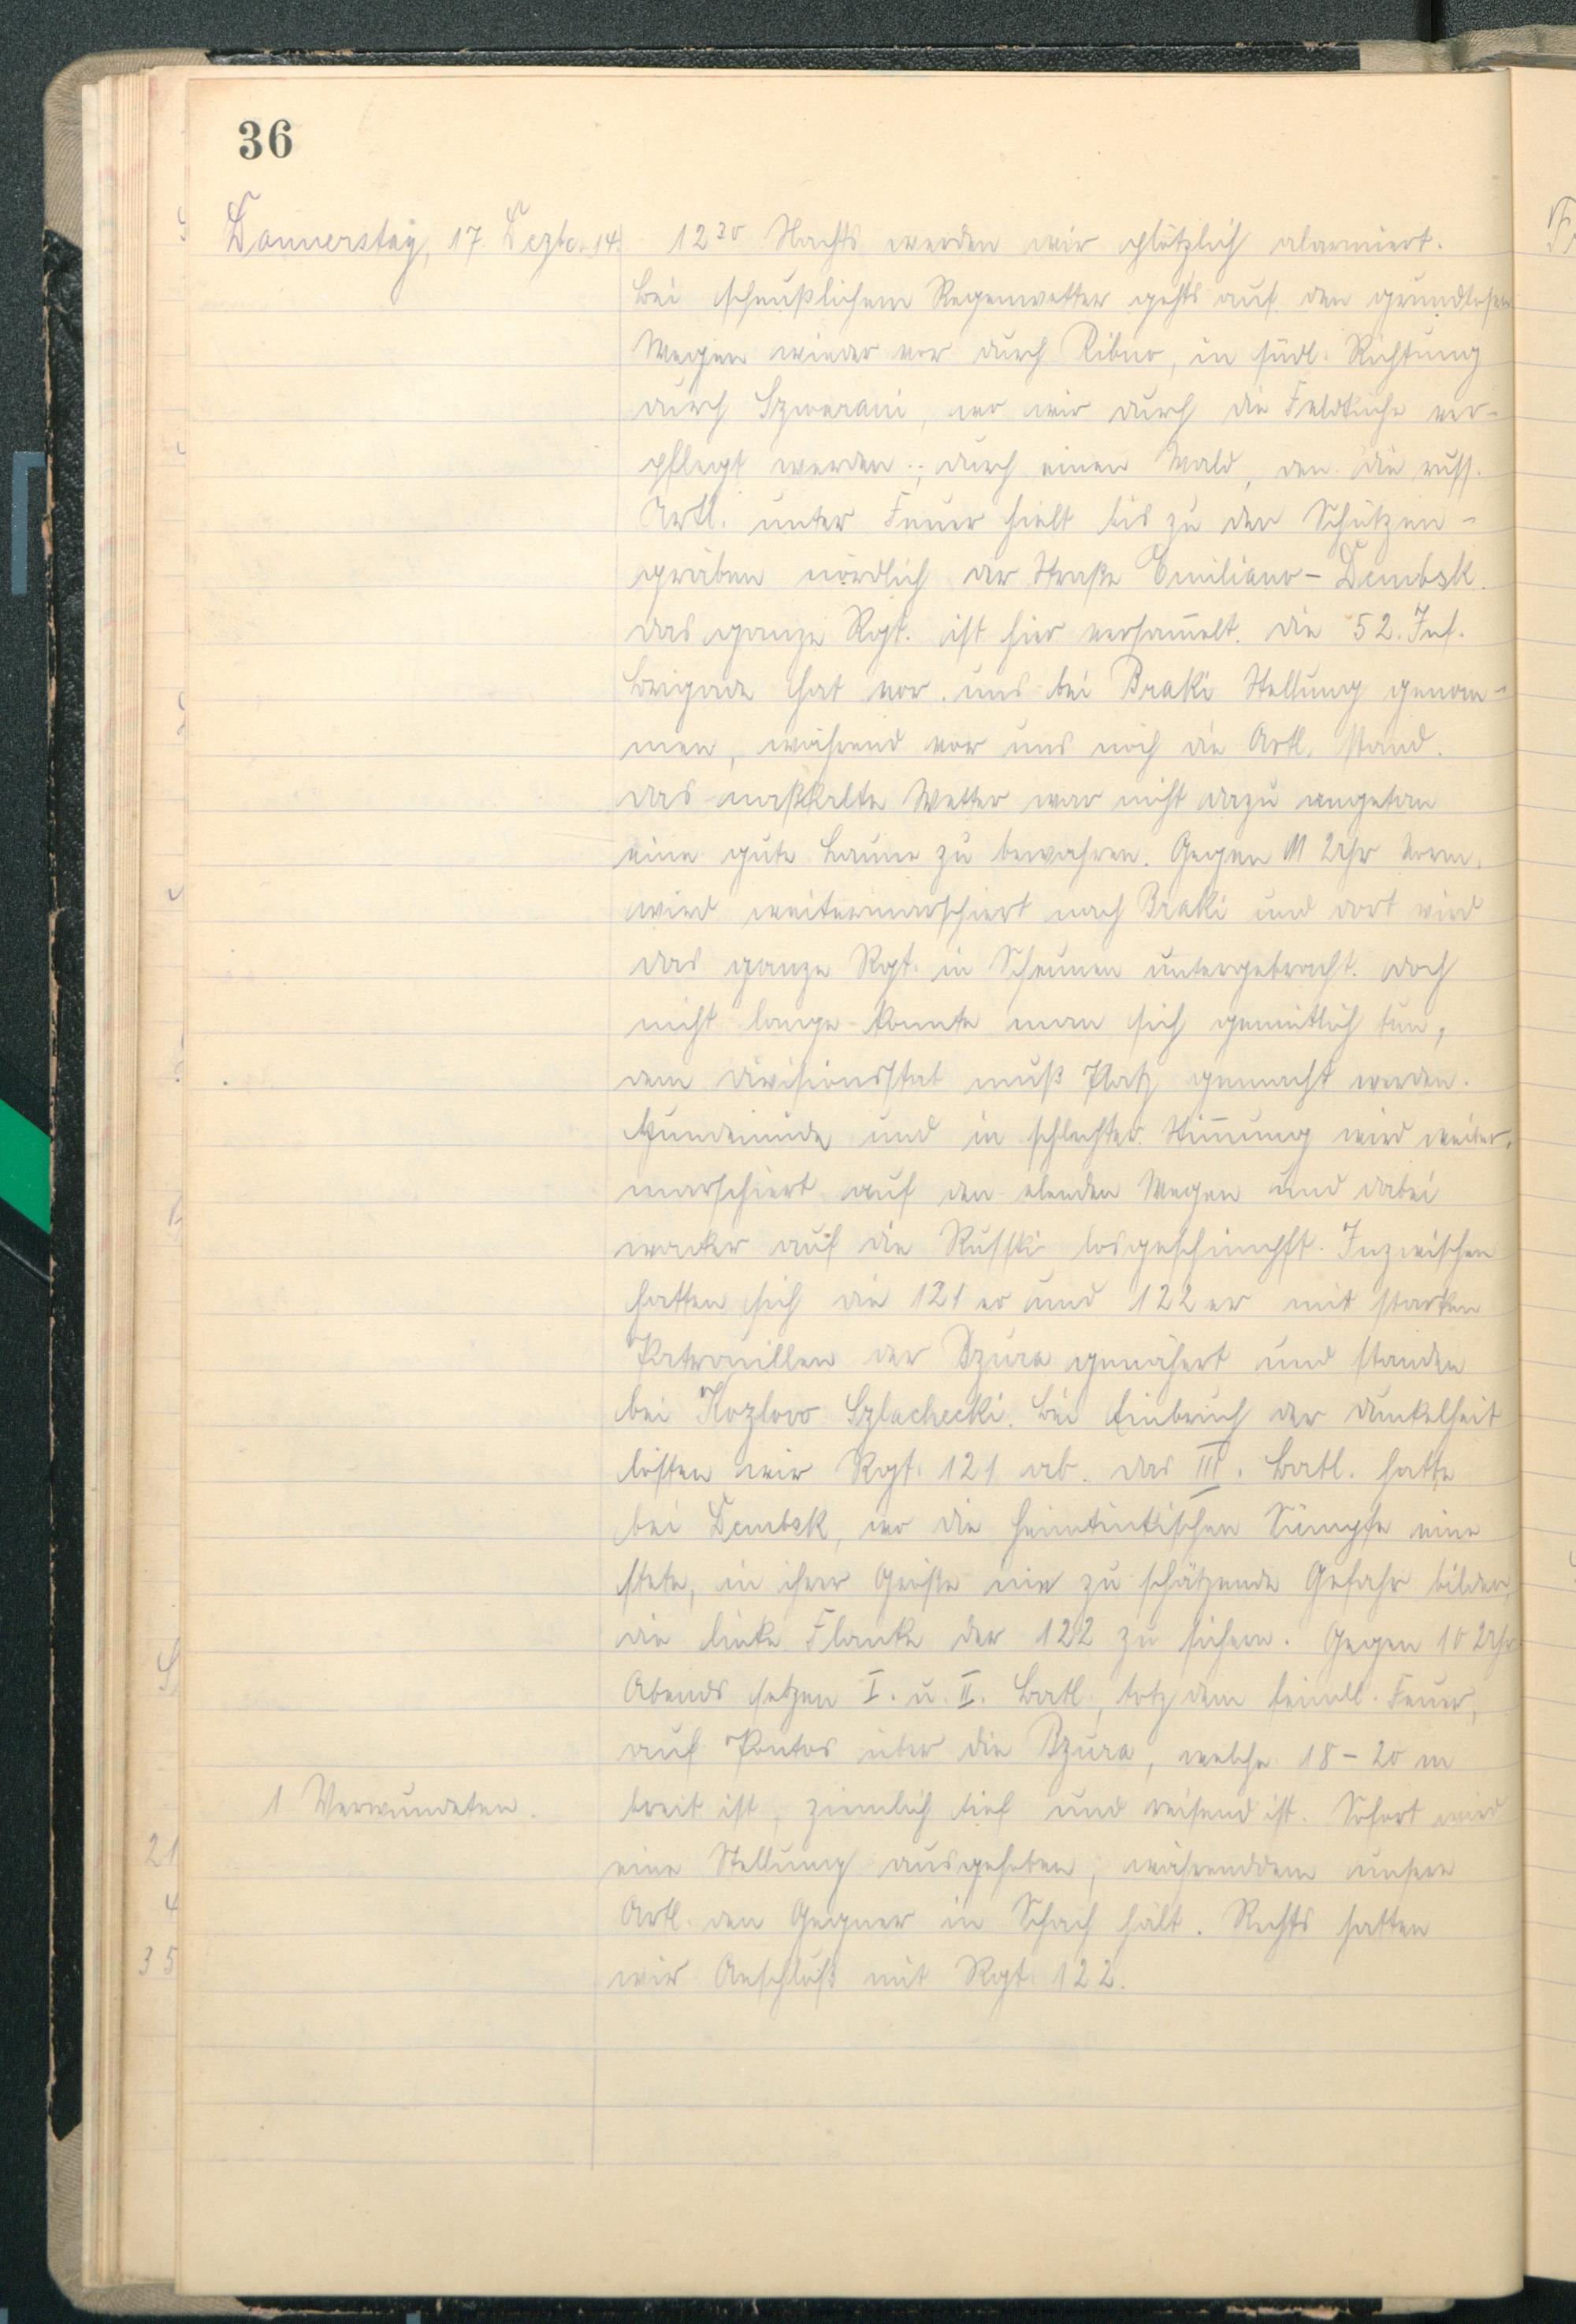 36
Donnerstag, 17. Dezbr. 14.
12³⁰ Nachts werden wir plötzlich alarmiert.
Bei scheußlichem Regenwetter gehts auf den grundlosen
Wegen wieder vor durch Ribno, in südl. Richtung
durch Szwarani, wo wir durch die Feldküche ver-
pflegt werden; durch einen Wald, den die russ.
Artl. unter Feuer hielt bis zu den Schützen-
gräben nördlich der Straße Emilianow-Dembsk.
Das ganze Rgt. ist hier versam̅elt. Die 52. Inf.
Brigade hat vor uns bei Braki Stellung genom-
men, während vor uns noch die Artl. stand.
Das naßkalte Wetter war nicht dazu angetan
eine gute Laune zu bewahren. Gegen 11 Uhr Vorm.
wird weitermarschiert nach Braki und dort wird
das ganze Rgt. in Scheunen untergebracht. Doch
nicht lange konnte man sich gemütlich tun,
dem Divisionsstab muß Platz gemacht werden.
Hundemüde und in schlechter Stim̅ung wird weiter-
marschiert auf den elenden Wegen und dabei
wacker auf die Russki losgeschimpft. Inzwischen
hatten sich die 121er und 122er mit starken
Patrouillen der Bzura genähert und standen
bei Kozlow Szlachecki. Bei Einbruch der Dunkelheit
lösten wir Rgt. 121 ab. Das III. Batl. hatte
bei Dembsk, wo die heimtückischen Sümpfe eine
stete, in ihrer Größe nie zu schätzende Gefahr bilden,
die linke Flanke der 122 zu sichern. Gegen 10 Uhr
Abends setzen I. u. II. Batl., trotz dem feindl. Feuer,
auf Pontos über die Bzura, welche 18-20 m
1 Verwundeten.
breit ist, ziemlich tief und reisend ist. Sofort wird
eine Stellung ausgehoben, währenddem unsere
Artl. den Gegner in Schach hält. Rechts hatten
wir Anschluß mit Rgt. 122.
21
4
35